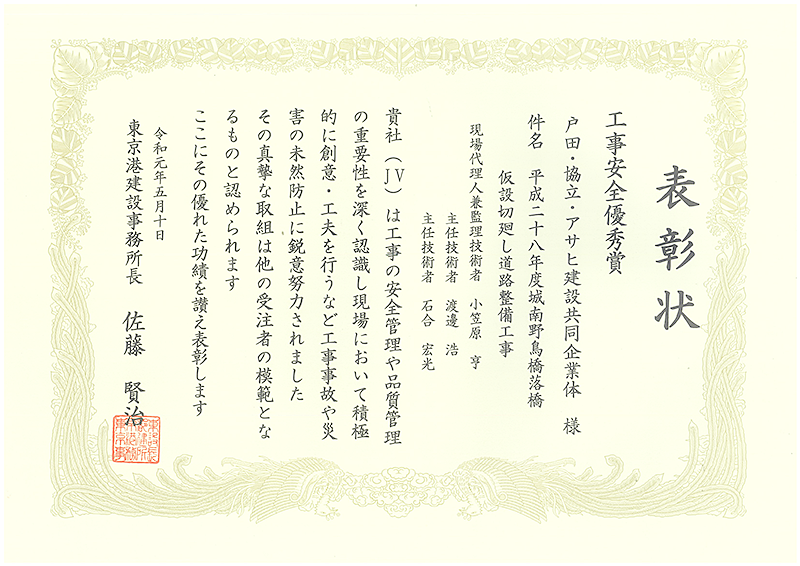 表彰状
工事安全優秀賞
戸田・協立・アサヒ建設共同企業体　様
件名　平成二十八年度城南野鳥橋落橋
仮設切廻し道路整備工事
現場代理人兼監理技術者　小笠原　亨
主任技術者　渡邊　浩
主任技術者　石合　宏光
貴社（JV）は工事の安全管理や品質管理
の重要性を深く認識し現場において積極
的に創意・工夫を行うなど工事事故や災
害の未然防止に鋭意努力されました
その真摯な取組は他の受注者の模範とな
るものと認められます
ここにその優れた功績を讃え表彰します
令和元年五月十日
東京港建設事務所長　佐藤　賢治